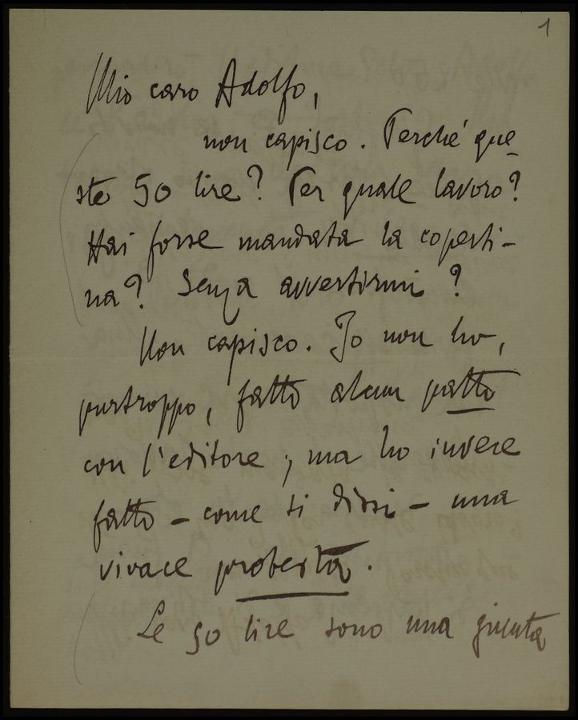 1
Mio caro Adolfo,
non capisco. Perché que-
ste 50 lire? Per quale lavoro?
Hai forse mandata la coperti-
na? Senza avvertirmi?
Non capisco. Io non ho,
purtroppo, fatto alcun patto
con l'editore; ma ho invece
fatto – come ti dissi – una
vivace protesta.
Le 50 lire sono una giunta